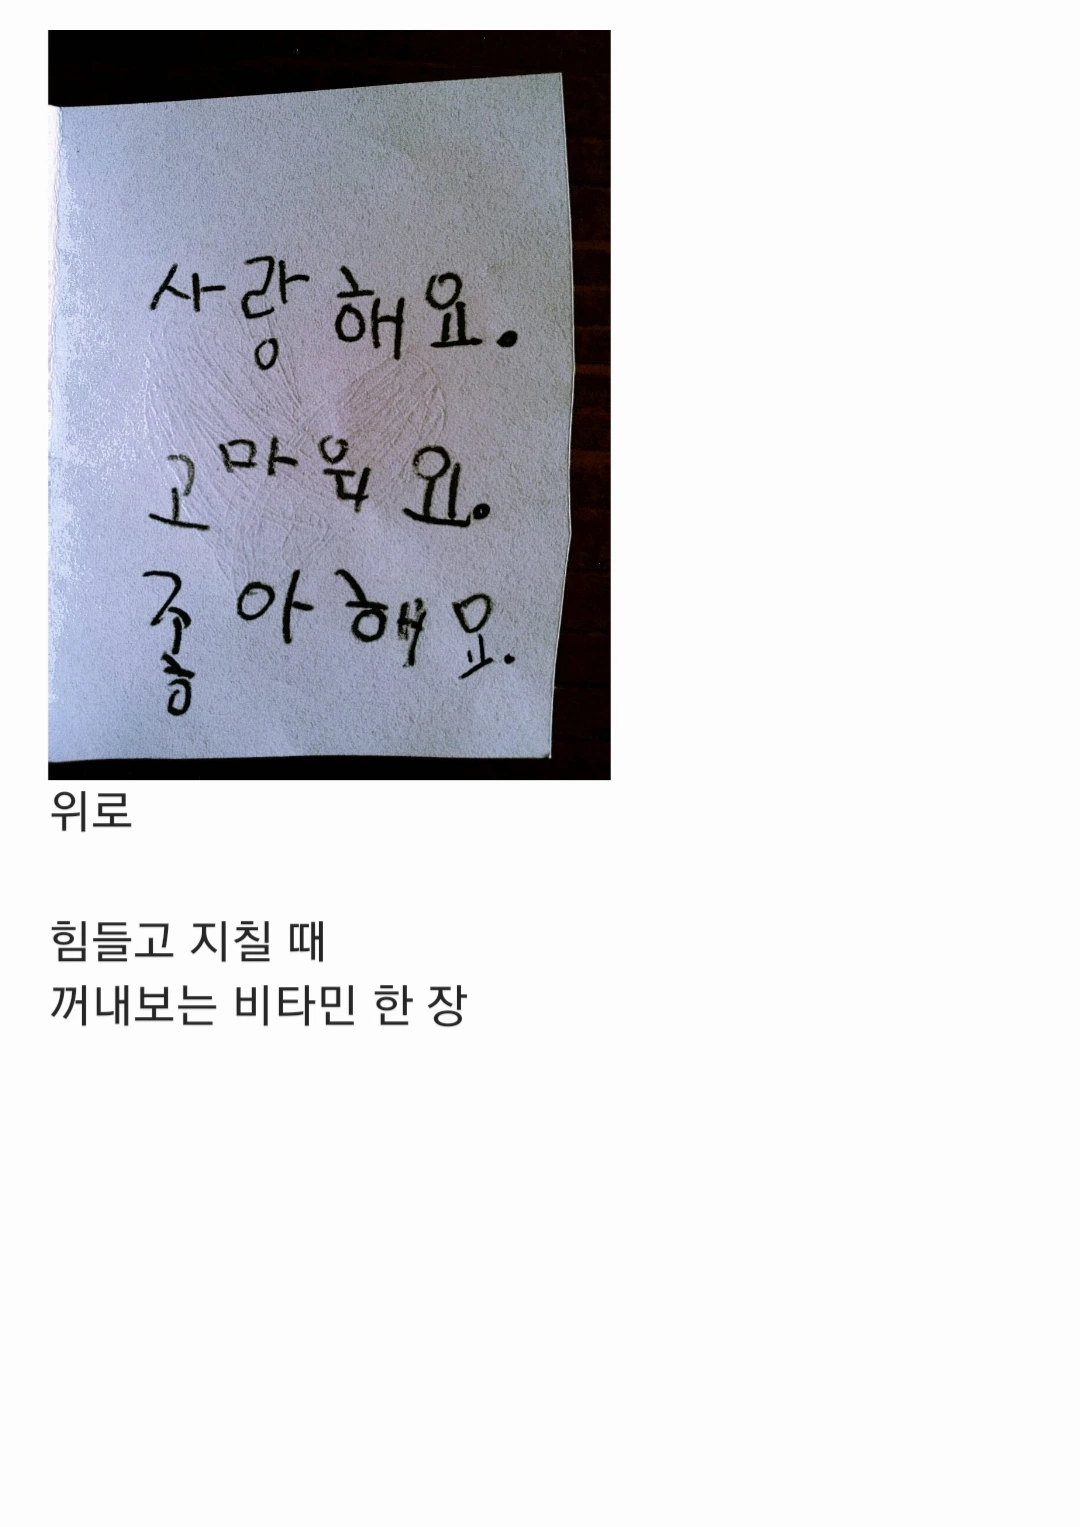 사랑해요.
고마워요.
좋아해요.
위로
힘들고 지칠 때
꺼내보는 비타민 한 장